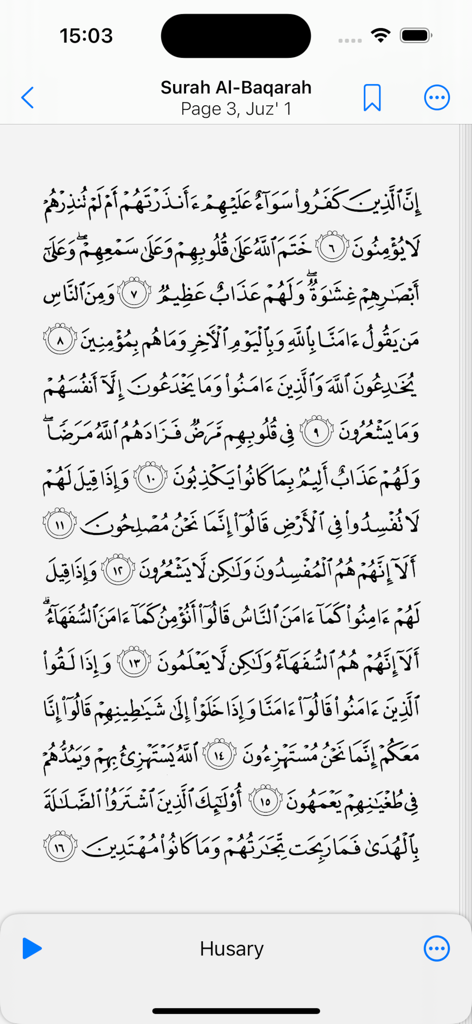 15:03
Surah Al-Baqarah
Page 3, Juz' 1
إِنَّ ٱلَّذِينَ كَفَرُوا۟ سَوَآءٌ عَلَيْهِمْ ءَأَنذَرْتَهُمْ أَمْ لَمْ تُنذِرْهُمْ
لَا يُؤْمِنُونَ ٦ خَتَمَ ٱللَّهُ عَلَىٰ قُلُوبِهِمْ وَعَلَىٰ سَمْعِهِمْ ۖ وَعَلَىٰٓ
أَبْصَٰرِهِمْ غِشَٰوَةٌ ۖ وَلَهُمْ عَذَابٌ عَظِيمٌ ٧ وَمِنَ ٱلنَّاسِ
مَن يَقُولُ ءَامَنَّا بِٱللَّهِ وَبِٱلْيَوْمِ ٱلْءَاخِرِ وَمَا هُم بِمُؤْمِنِينَ ٨
يُخَٰدِعُونَ ٱللَّهَ وَٱلَّذِينَ ءَامَنُوا۟ وَمَا يَخْدَعُونَ إِلَّآ أَنفُسَهُمْ
وَمَا يَشْعُرُونَ ٩ فِى قُلُوبِهِم مَّرَضٌ فَزَادَهُمُ ٱللَّهُ مَرَضًا ۖ
وَلَهُمْ عَذَابٌ أَلِيمٌۢ بِمَا كَانُوا۟ يَكْذِبُونَ ١٠ وَإِذَا قِيلَ لَهُمْ
لَا تُفْسِدُوا۟ فِى ٱلْأَرْضِ قَالُوٓا۟ إِنَّمَا نَحْنُ مُصْلِحُونَ ١١
أَلَآ إِنَّهُمْ هُمُ ٱلْمُفْسِدُونَ وَلَٰكِن لَّا يَشْعُرُونَ ١٢ وَإِذَا قِيلَ
لَهُمْ ءَامِنُوا۟ كَمَآ ءَامَنَ ٱلنَّاسُ قَالُوٓا۟ أَنُؤْمِنُ كَمَآ ءَامَنَ ٱلسُّفَهَآءُ ۗ
أَلَآ إِنَّهُمْ هُمُ ٱلسُّفَهَآءُ وَلَٰكِن لَّا يَعْلَمُونَ ١٣ وَإِذَا لَقُوا۟
ٱلَّذِينَ ءَامَنُوا۟ قَالُوٓا۟ ءَامَنَّا وَإِذَا خَلَوْا۟ إِلَىٰ شَيَٰطِينِهِمْ قَالُوٓا۟ إِنَّا
مَعَكُمْ إِنَّمَا نَحْنُ مُسْتَهْزِءُونَ ١٤ ٱللَّهُ يَسْتَهْزِئُ بِهِمْ وَيَمُدُّهُمْ
فِى طُغْيَٰنِهِمْ يَعْمَهُونَ ١٥ أُو۟لَٰٓئِكَ ٱلَّذِينَ ٱشْتَرَوُا۟ ٱلضَّلَٰلَةَ
بِٱلْهُدَىٰ فَمَا رَبِحَت تِّجَٰرَتُهُمْ وَمَا كَانُوا۟ مُهْتَدِينَ ١٦
Husary